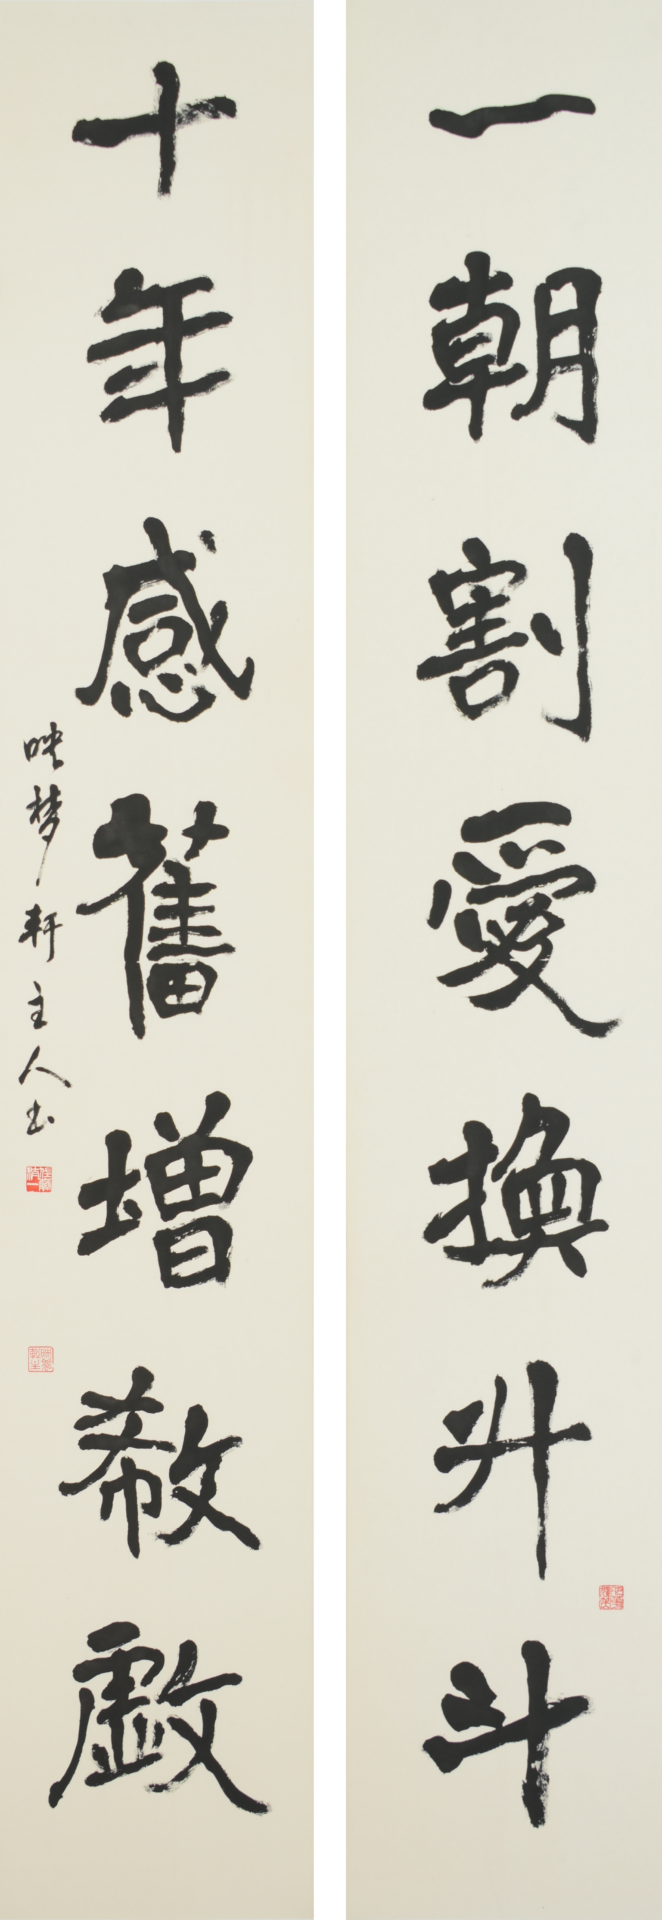 一朝割愛換升斗
十年感舊增欷歔
映梦軒主人书